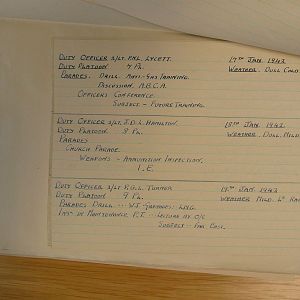 DUTY OFFICER 2/LT. F.N.L. LYCETT. 17TH JAN. 1943
DUTY PLATOON 7 PL. WEATHER. DULL COLD
PARADES. DRILL. ANTI-GAS TRAINING.
DISCUSSION. A.B.C.A.
OFFICERS CONFERENCE.
SUBJECT - FUTURE TRAINING.
DUTY OFFICER 2/LT. J.D.L. HAMILTON. 18TH JAN. 1943
DUTY PLATOON 8 PL. WEATHER. DULL MILD
PARADES
CHURCH PARADE.
WEAPONS - AMMUNITION INSPECTION.
I.E.
DUTY OFFICER 2/LT R.G.L. TURNER 19TH JAN. 1943
DUTY PLATOON 9 PL. WEATHER MILD.
PARADES DRILL W.T. GRENADES L.M.G.
MAINTENANCE P.T. LECTURE BY O/C
SUBJECT -